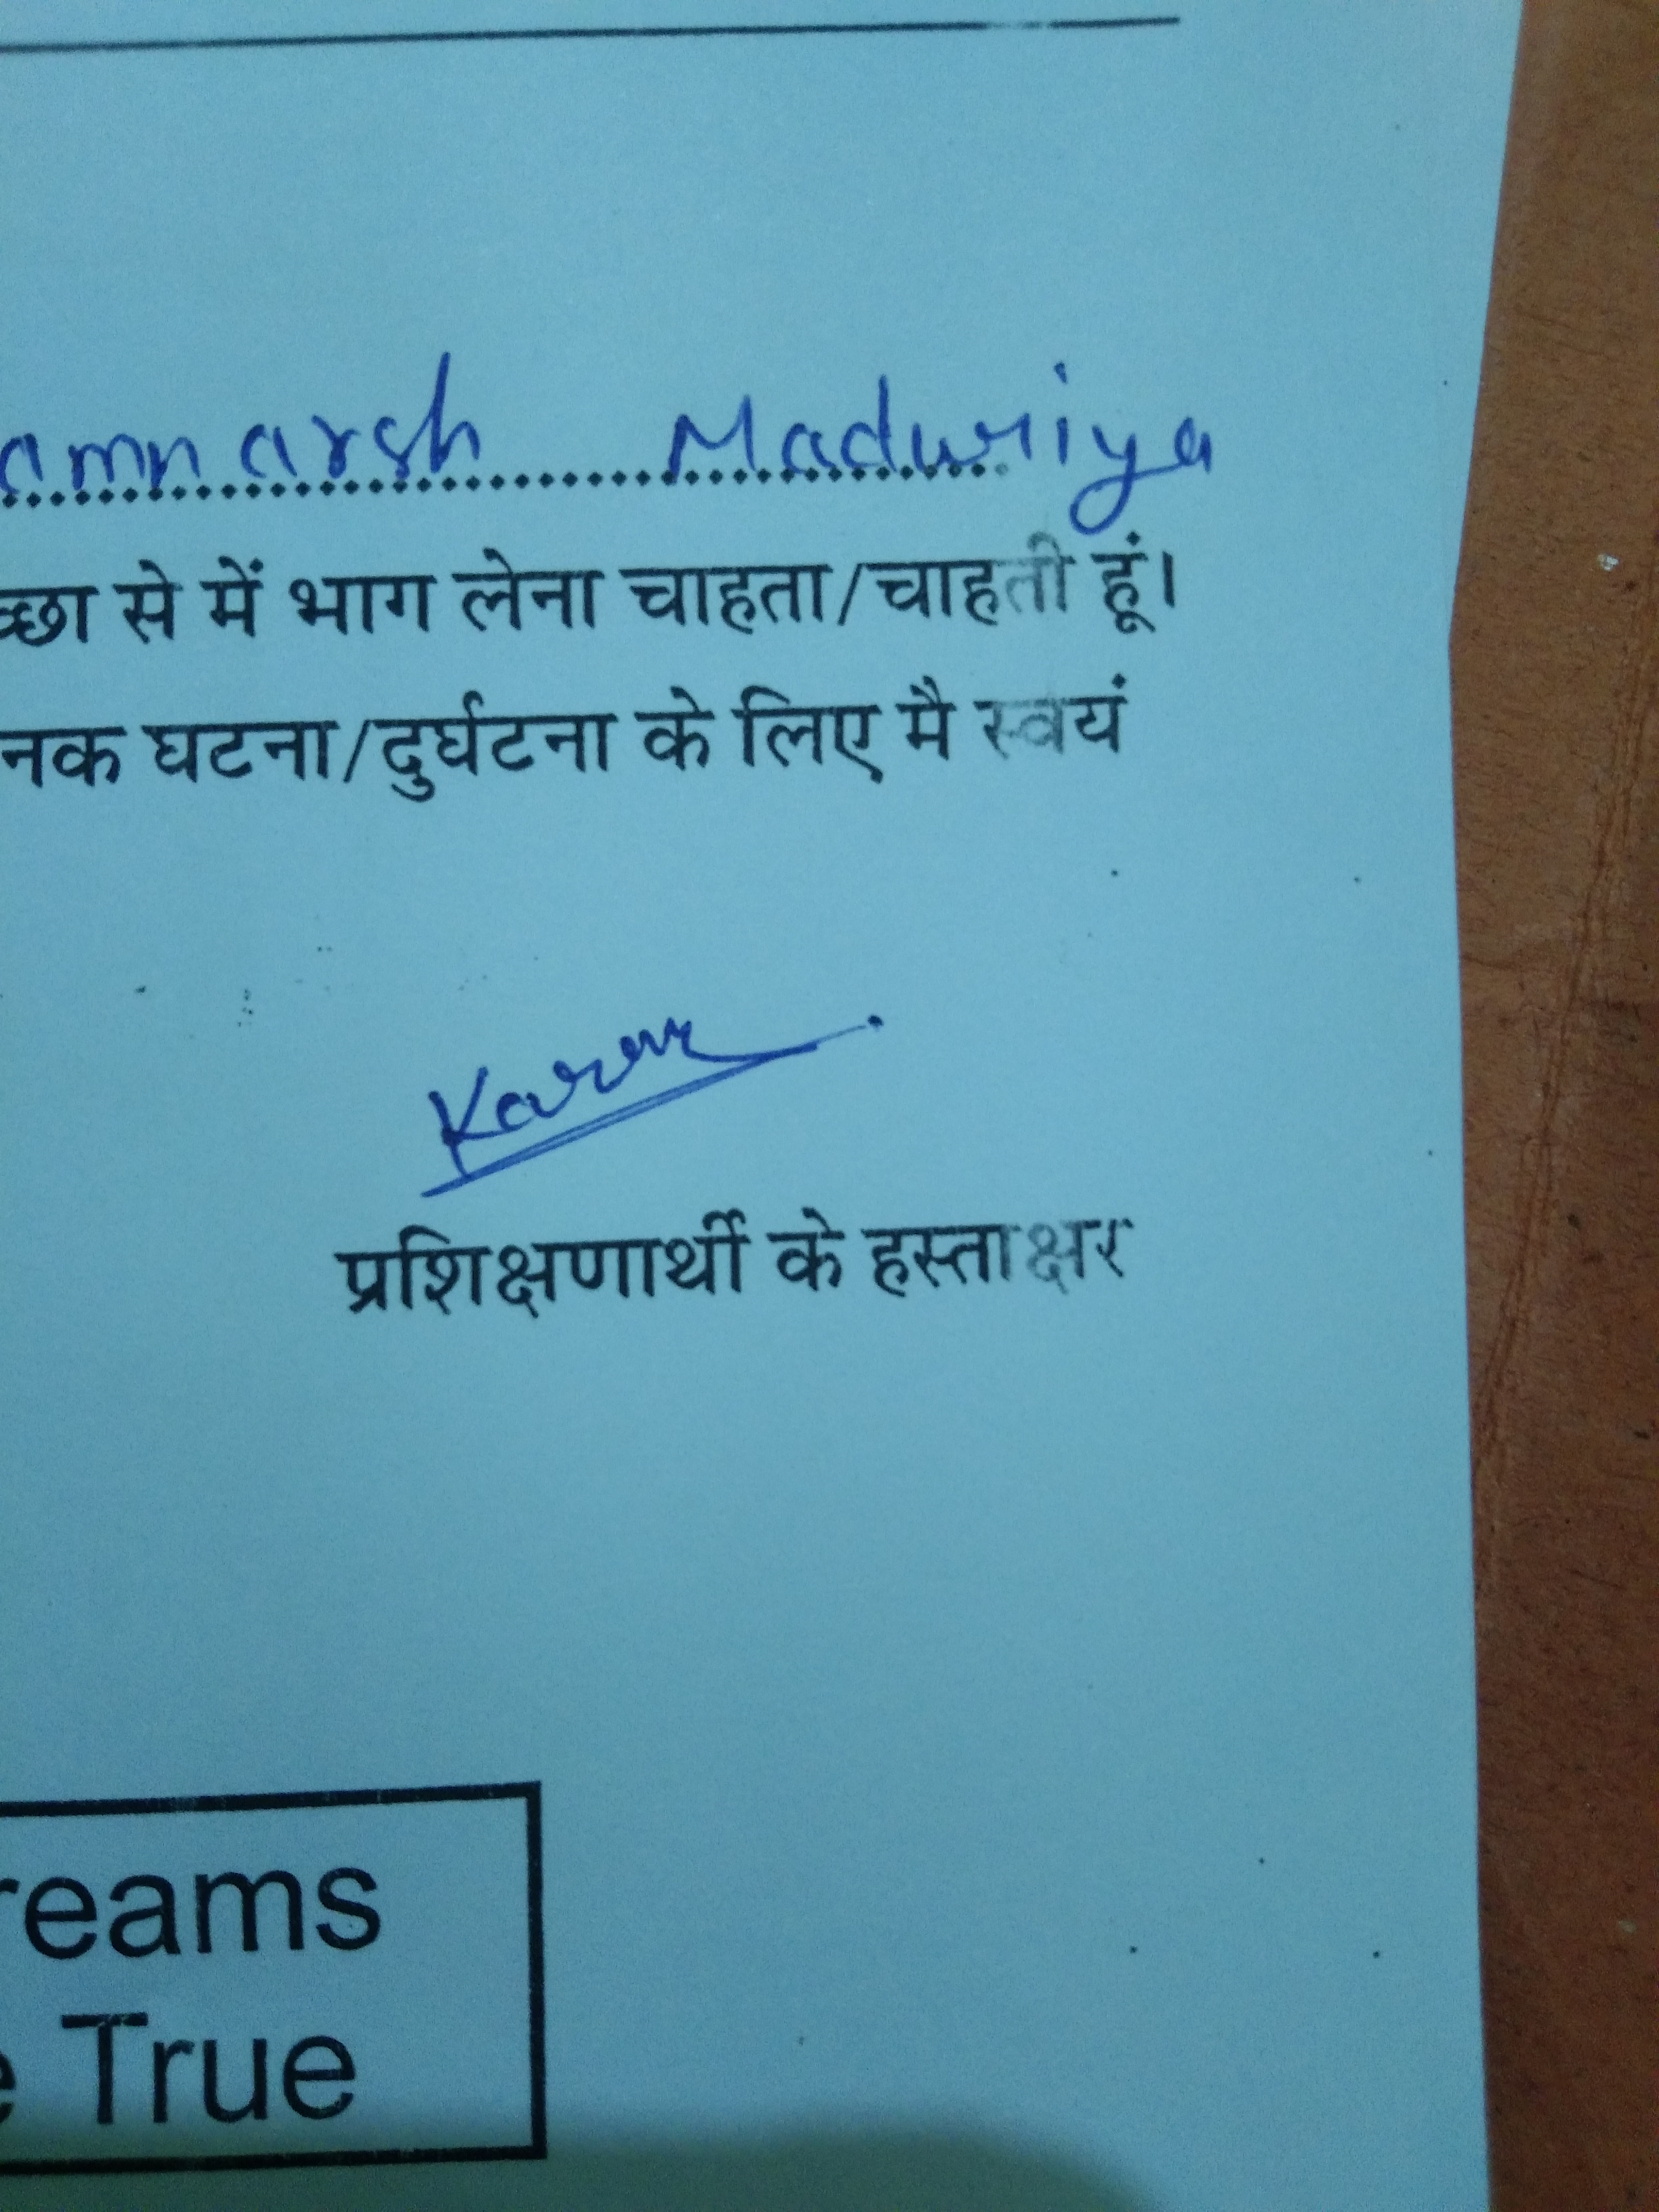 amnarsh Madwriya
च्छा से में भाग लेना चाहता/चाहती हूं।
नक घटना/दुर्घटना के लिए मै स्वयं
Karan
प्रशिक्षणार्थी के हस्ताक्षर
reams
e True